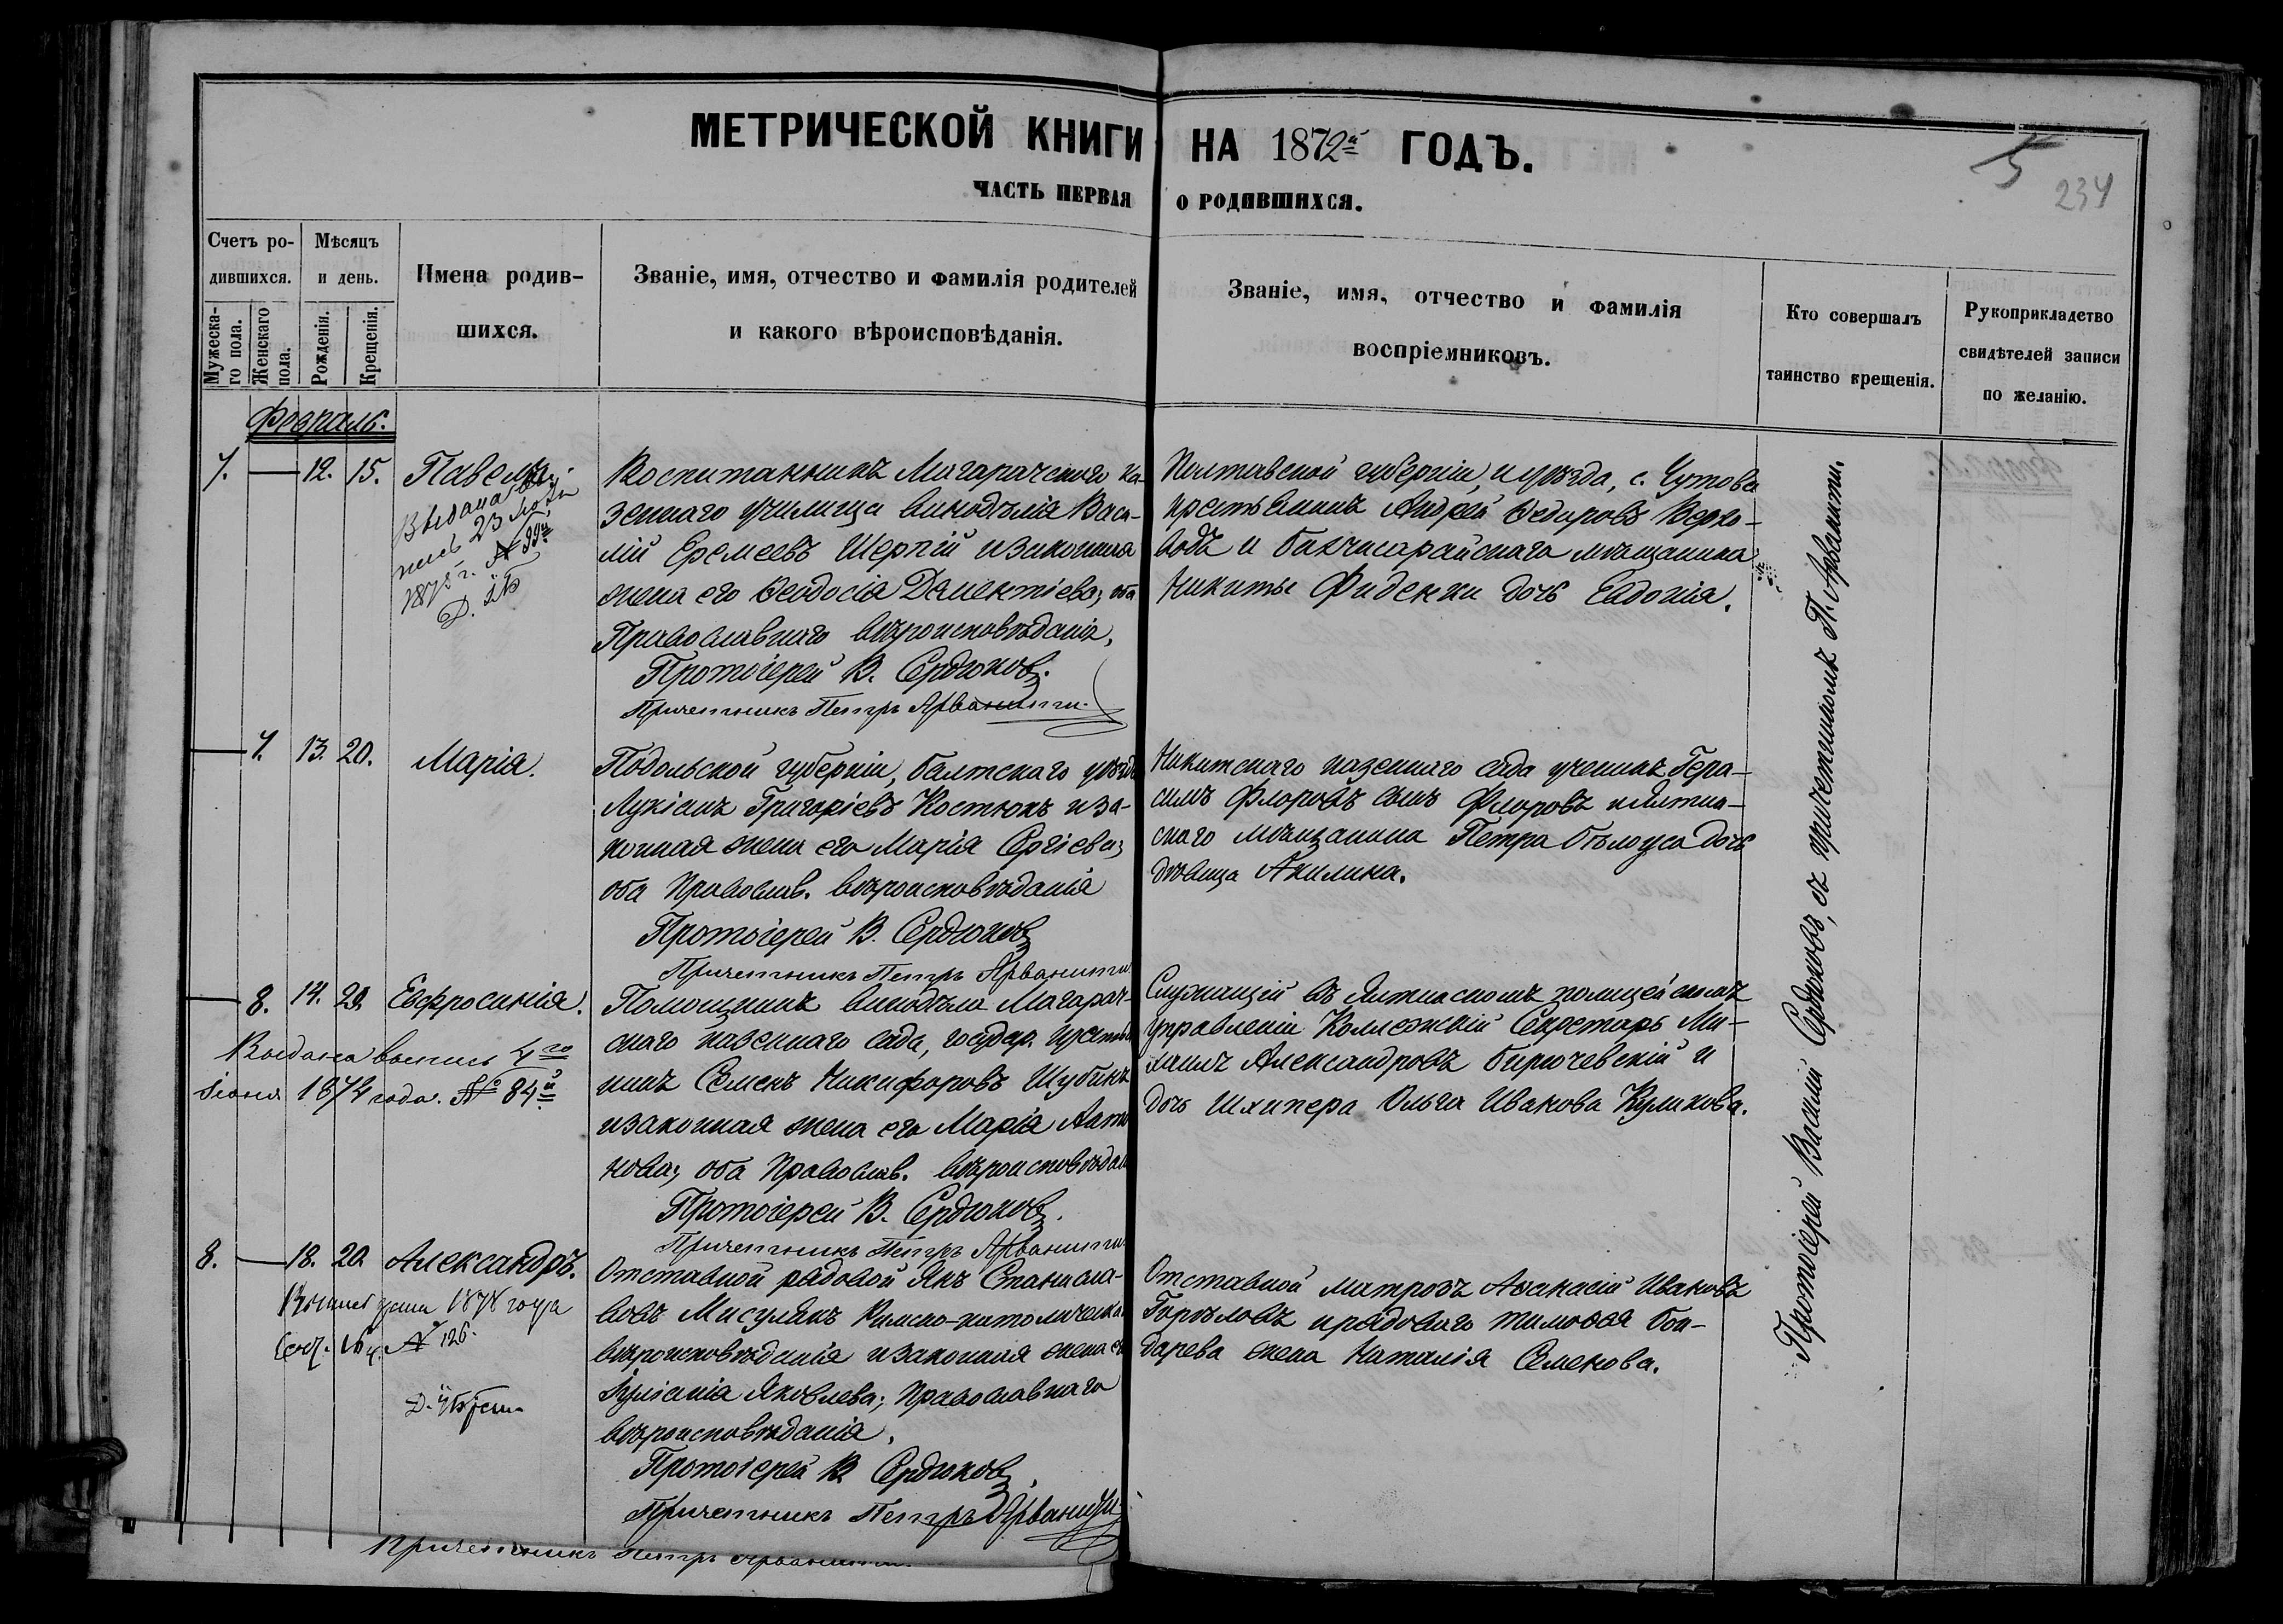 МЕТРИЧЕСКОЙ КНИГИ НА 1872й ГОДЪ.
ЧАСТЬ ПЕРВАЯ О РОДИВШИХСЯ.
5
234
Счетъ ро-
дившихся.
Мужеска-
го пола.
Женскаго
пола.
Мѣсяцъ
и день.
Рожденія.
Крещенія.
Имена родив-
шихся.
Званіе, имя, отчество и фамилія родителей
и какого вѣроисповѣданія.
Званіе, имя, отчество и фамилія
воспріемниковъ.
Кто совершалъ
таинство крещенія.
Рукоприкладство
свидѣтелей записи
по желанію.
Февраль.
7. — 12. 15. Павелъ
Выдана вы
пись 23
187 г. № 99й
Воспитанникъ Магарачскаго ка-
зеннаго училища винодѣлія Васи-
лій Еремеевъ Шергій и законная
жена его Ѳеодосія Даментіева; оба
Православнаго вѣроисповѣданія.
Протоіерей В. Сердюковъ.
Причетникъ Петръ Арванити.
Полтавской губерніи, и уѣзда, с. Чутова
крестьянинъ Андрей Ѳедоровъ Верхо-
водъ и бахчисарайскаго мѣщанина
Никиты Фиденки дочь Евдокія.
— 7. 13. 20. Марія.
Подольской губерніи, балтскаго уѣзда
Лукіанъ Григоріевъ Костюкъ и за-
конная жена его Марія Сергіева;
оба Православ. вѣроисповѣданія
Протоіерей В. Сердюковъ
Причетникъ Петръ Арванити
Никитскаго казеннаго сада ученикъ Гера-
симъ Флоровъ сынъ Флоровъ и Ялтин-
скаго мѣщанина Петра Бѣлоуса дочь
дѣвица Акилина.
— 8. 14. 20. Евфросинія.
Выдана выпись 4го
Іюня 1874 года. № 84й
Помощникъ винодѣла Магарач-
скаго казеннаго сада, государ. крестья
нинъ Семенъ Никифоровъ Шубинъ
и законная жена его Марія Анто
нова; оба Православ. вѣроисповѣдан
Протоіерей В. Сердюковъ.
Причетникъ Петръ Арванити
Служащій въ Ялтинскомъ полицейскомъ
управленіи Коллежскій Секретарь Ми-
хаилъ Александровъ Бирючевскій и
дочь Шхипера Ольга Иванова Куликова.
8. — 18. 20. Александръ.
года
№ 126.
Отставной рядовой Янъ Станисла-
вовъ Мисулянъ Римско-католическа
вѣроисповѣданія и законная жена ег
Іуліанія Яковлева; Православнаго
вѣроисповѣданія.
Протоіерей В Сердюковъ.
Причетникъ Петръ Арванити
Отставной матрозъ Аѳанасій Ивановъ
Горѣловъ и рядоваго Тимоѳея Бон-
дарева жена Наталія Семенова.
Протоіерей Василій Сердюковъ, съ причетникомъ П. Арванити.
Причетникъ Петръ Арванити